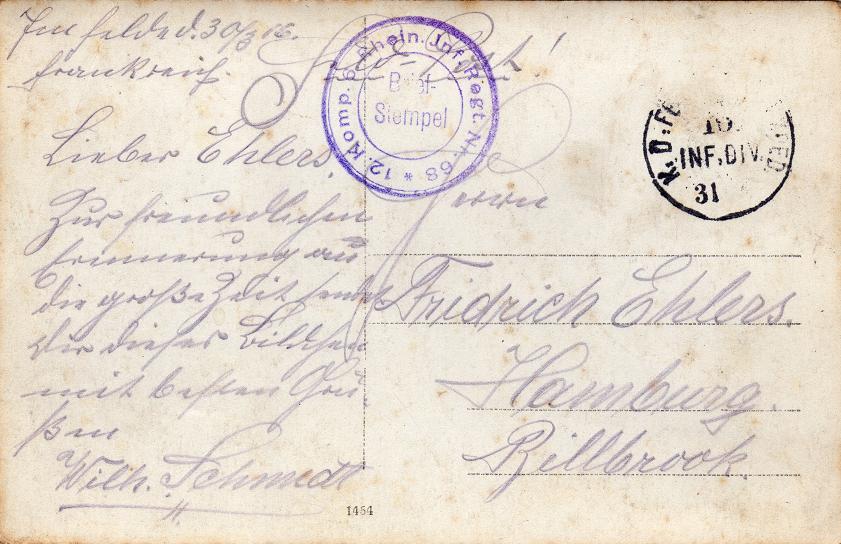 Im Felde d. 30/3 16.
Frankreich.
Feld-Post!
12. Komp. 6. Rhein. Inf. Regt. Nr. 68 *
Brief-
Stempel
K.D.FE
16.
INF.DIV.
31
Lieber Ehlers.
Zur freundlichen
Erinnerung aus
die große Zeit sendet
Dir dieses Bildchen
mit besten Grü
ßen
Wilh. Schmidt
Herrn
Fridrich Ehlers.
Hamburg.
Billbrook.
1454